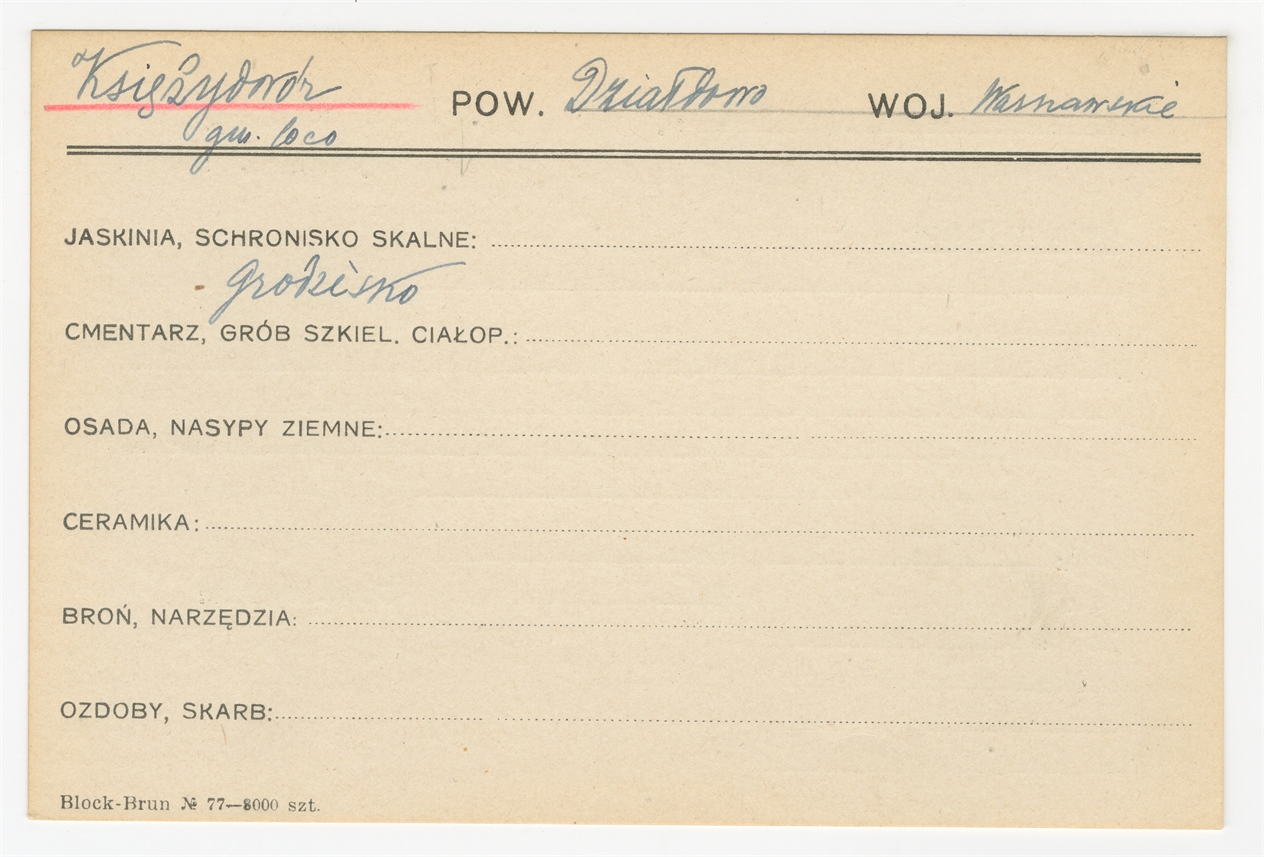 Księżydwór POW. Działdowo WOJ. Warszawskie
gm. loco
JASKINIA, SCHRONISKO SKALNE:
Grodzisko
CMENTARZ, GRÓB SZKIEL. CIAŁOP.:
OSADA, NASYPY ZIEMNE:
CERAMIKA:
BROŃ, NARZĘDZIA:
OZDOBY, SKARB:
Block-Brun № 77—8000 szt.